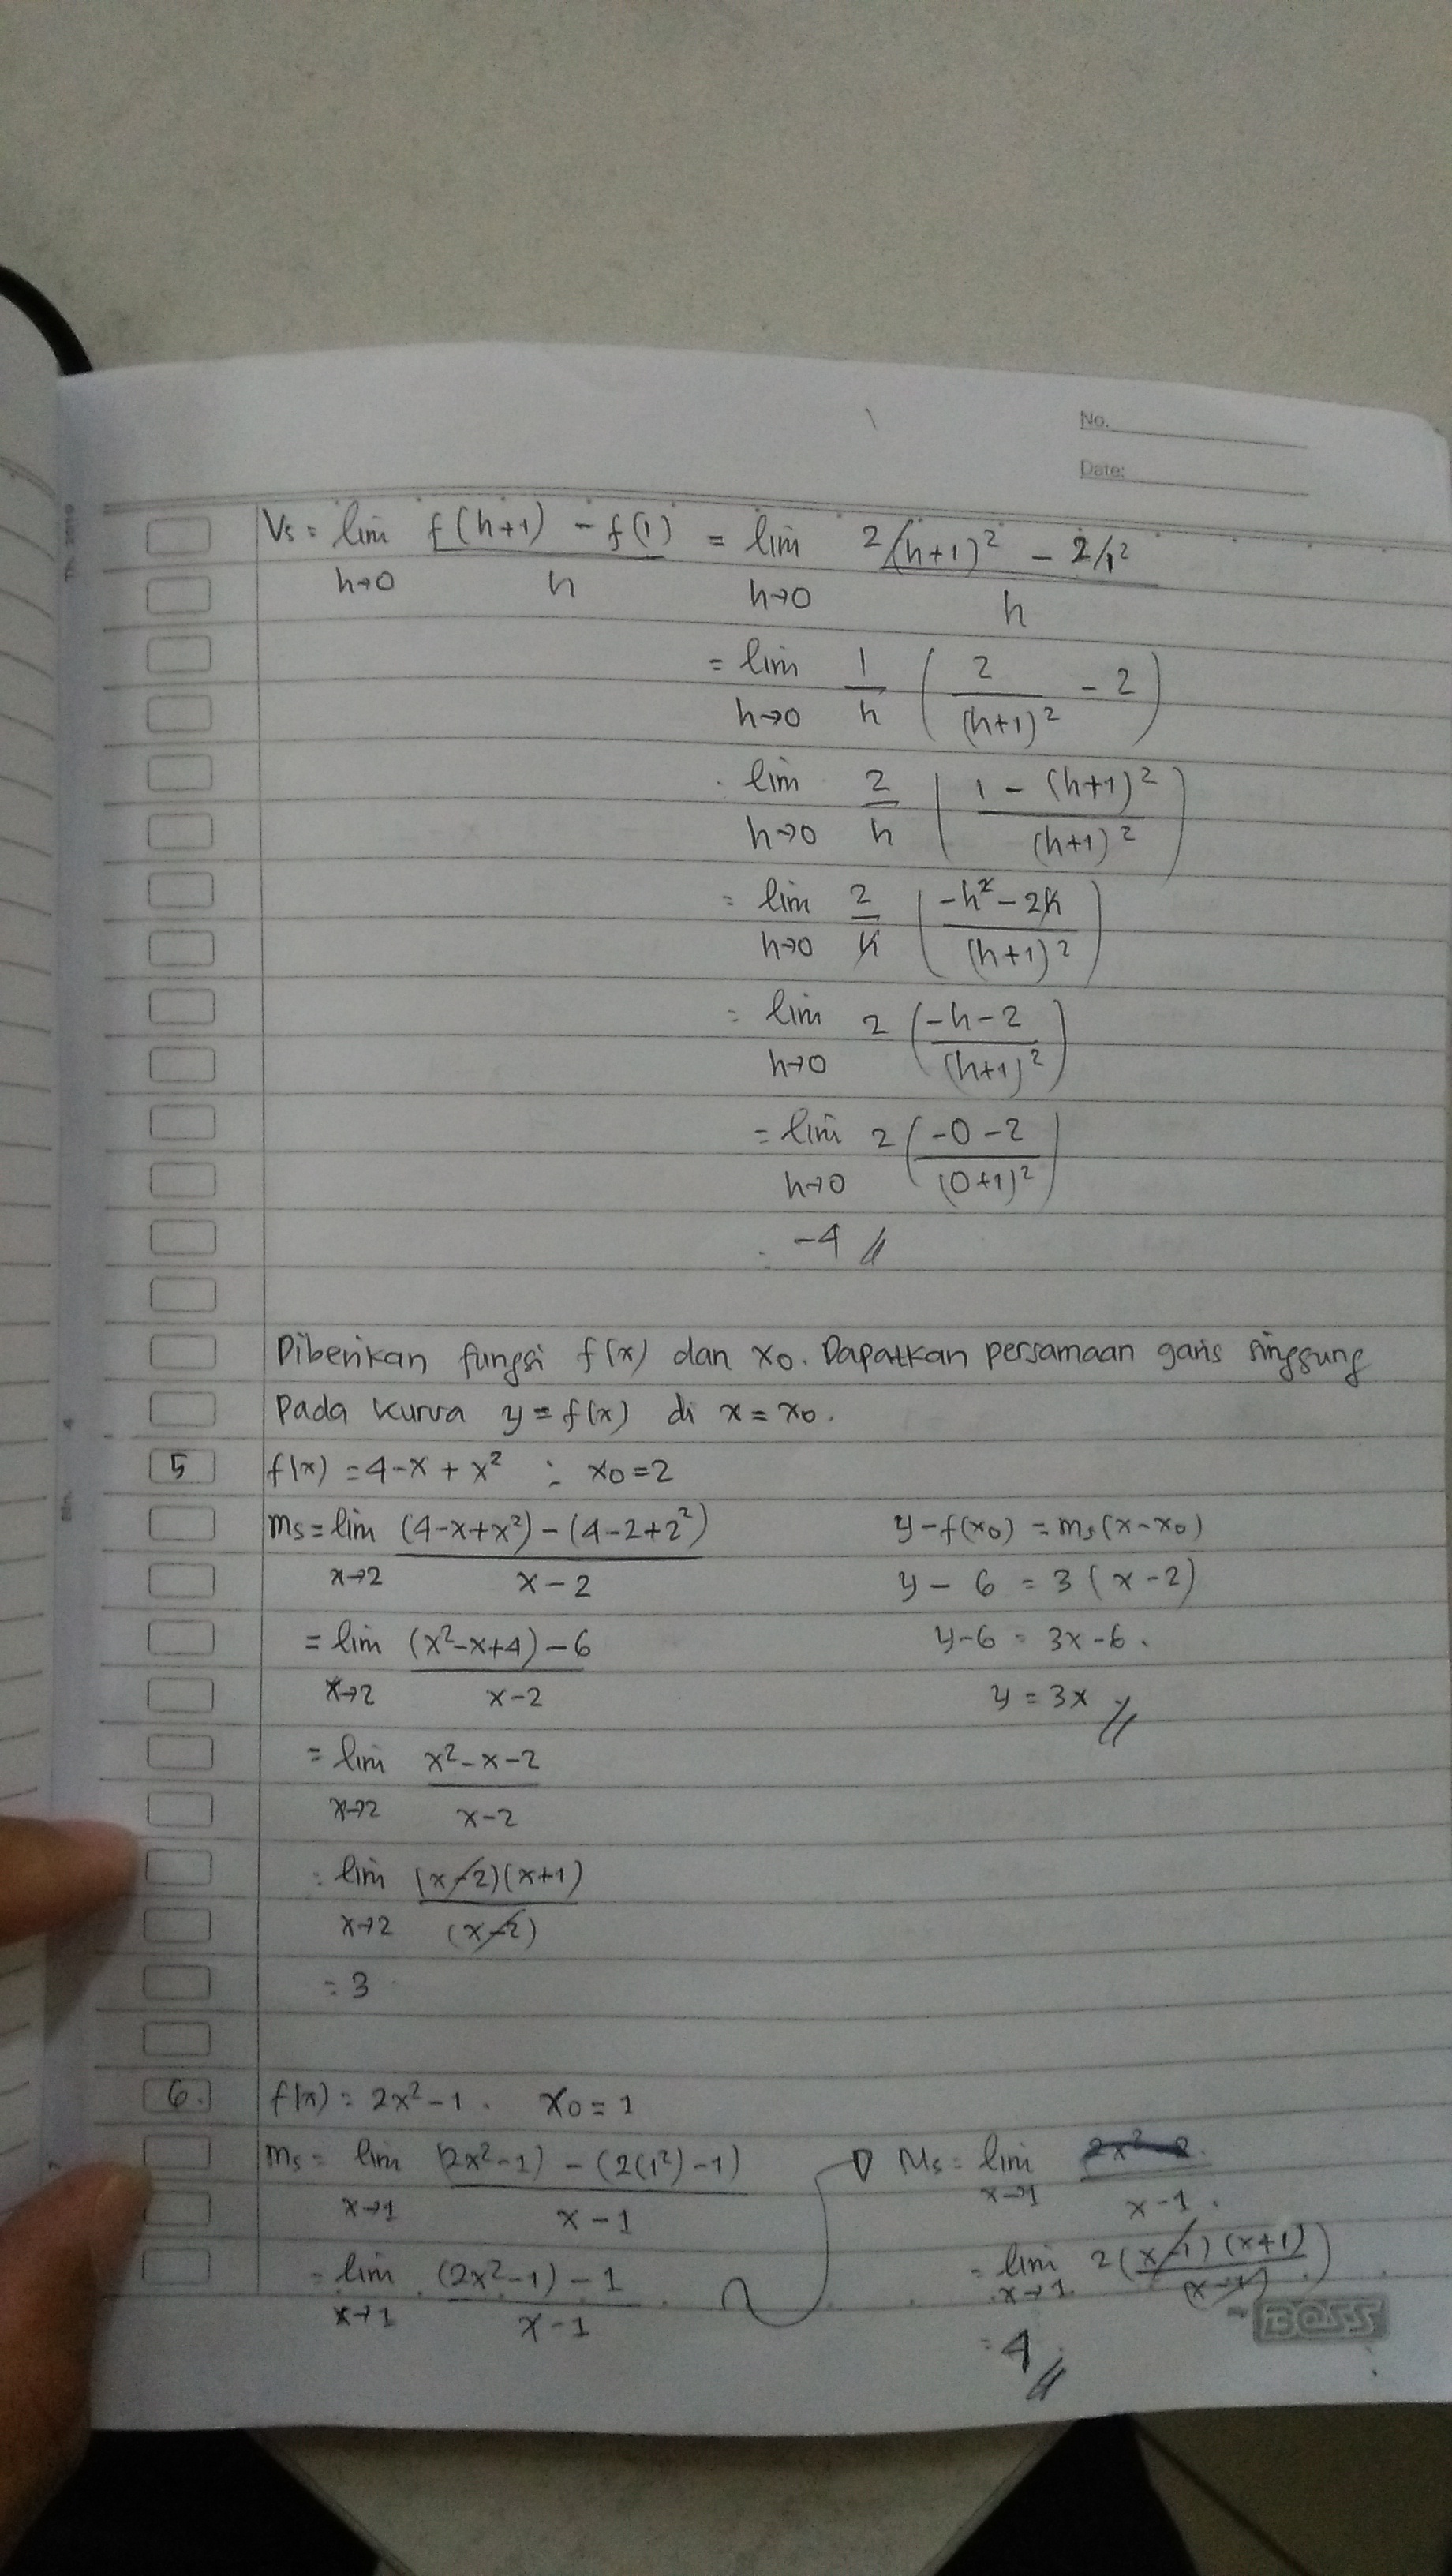 No.
Date:
Vs = lim f(h+1) - f(1) = lim 2/(h+1)² - 2/1²
h→0 h h→0 h
= lim 1 ( 2 - 2 )
h→0 h (h+1)²
lim 2 ( 1 - (h+1)² )
h→0 h (h+1)²
= lim 2 ( -h² - 2h )
h→0 h (h+1)²
= lim 2 ( -h-2 )
h→0 (h+1)²
= lim 2 ( -0-2 )
h→0 (0+1)²
-4 //
Diberikan fungsi f(x) dan x₀. Dapatkan persamaan garis singgung
Pada kurva y = f(x) di x = x₀.
5 f(x) = 4-x + x² ; x₀=2
ms = lim (4-x+x²) - (4-2+2²)
x→2 x-2
= lim (x²-x+4) - 6
x→2 x-2
= lim x²-x-2
x→2 x-2
: lim (x-2)(x+1)
x→2 (x-2)
= 3
y - f(x₀) = ms (x-x₀)
y - 6 = 3 (x-2)
y-6 = 3x-6.
y = 3x //
6. f(x) = 2x²-1. x₀ = 1
ms = lim (2x²-1) - (2(1²)-1)
x→1 x-1
= lim (2x²-1) - 1
x→1 x-1
Ms = lim 2x²-2
x→1 x-1.
= lim 2(x-1)(x+1)
x→1 (x-1)
= 4 //
BOSS